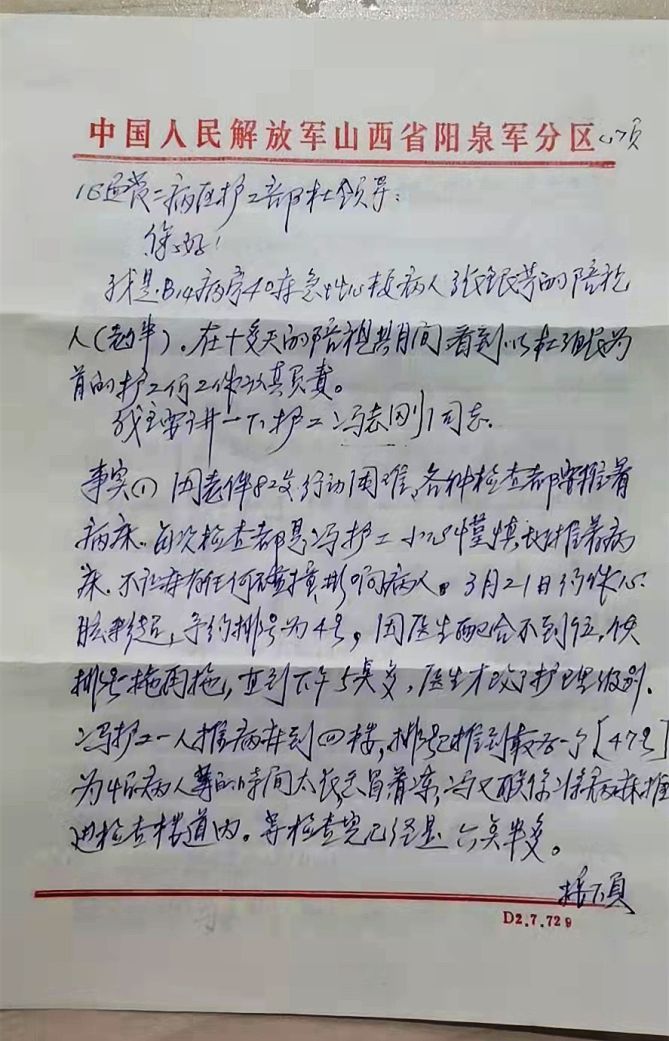 中国人民解放军山西省阳泉军分区 (1)页
普二病区护工部杜领导:
您好!
我是:B14病房40床急性心梗病人张银芳的陪视
人(老伴)。在十多天的陪视其月间看到以杜组长为
首的护工们工作认真负责。
我主要讲一下护工冯志刚同志。
事实(1)因老伴82岁行动困难,各种检查都要推着
病床。每次检查都是冯护工小心谨慎地推着病
床.不让床有任何碰撞,影响病人。3月21日约作心
脏彩超,予约排号为4号,因医生配合不到位,使
排号一拖再拖,直到下午5点多,医生才改了护理级别.
冯护工一人推病床到四楼,排号推到最后一个[47号]
为怕病人等的时间太长冒着凉,冯又联系将病床推
进检查楼道内。等检查完已经是六点半多。
接下页
D2.7.729